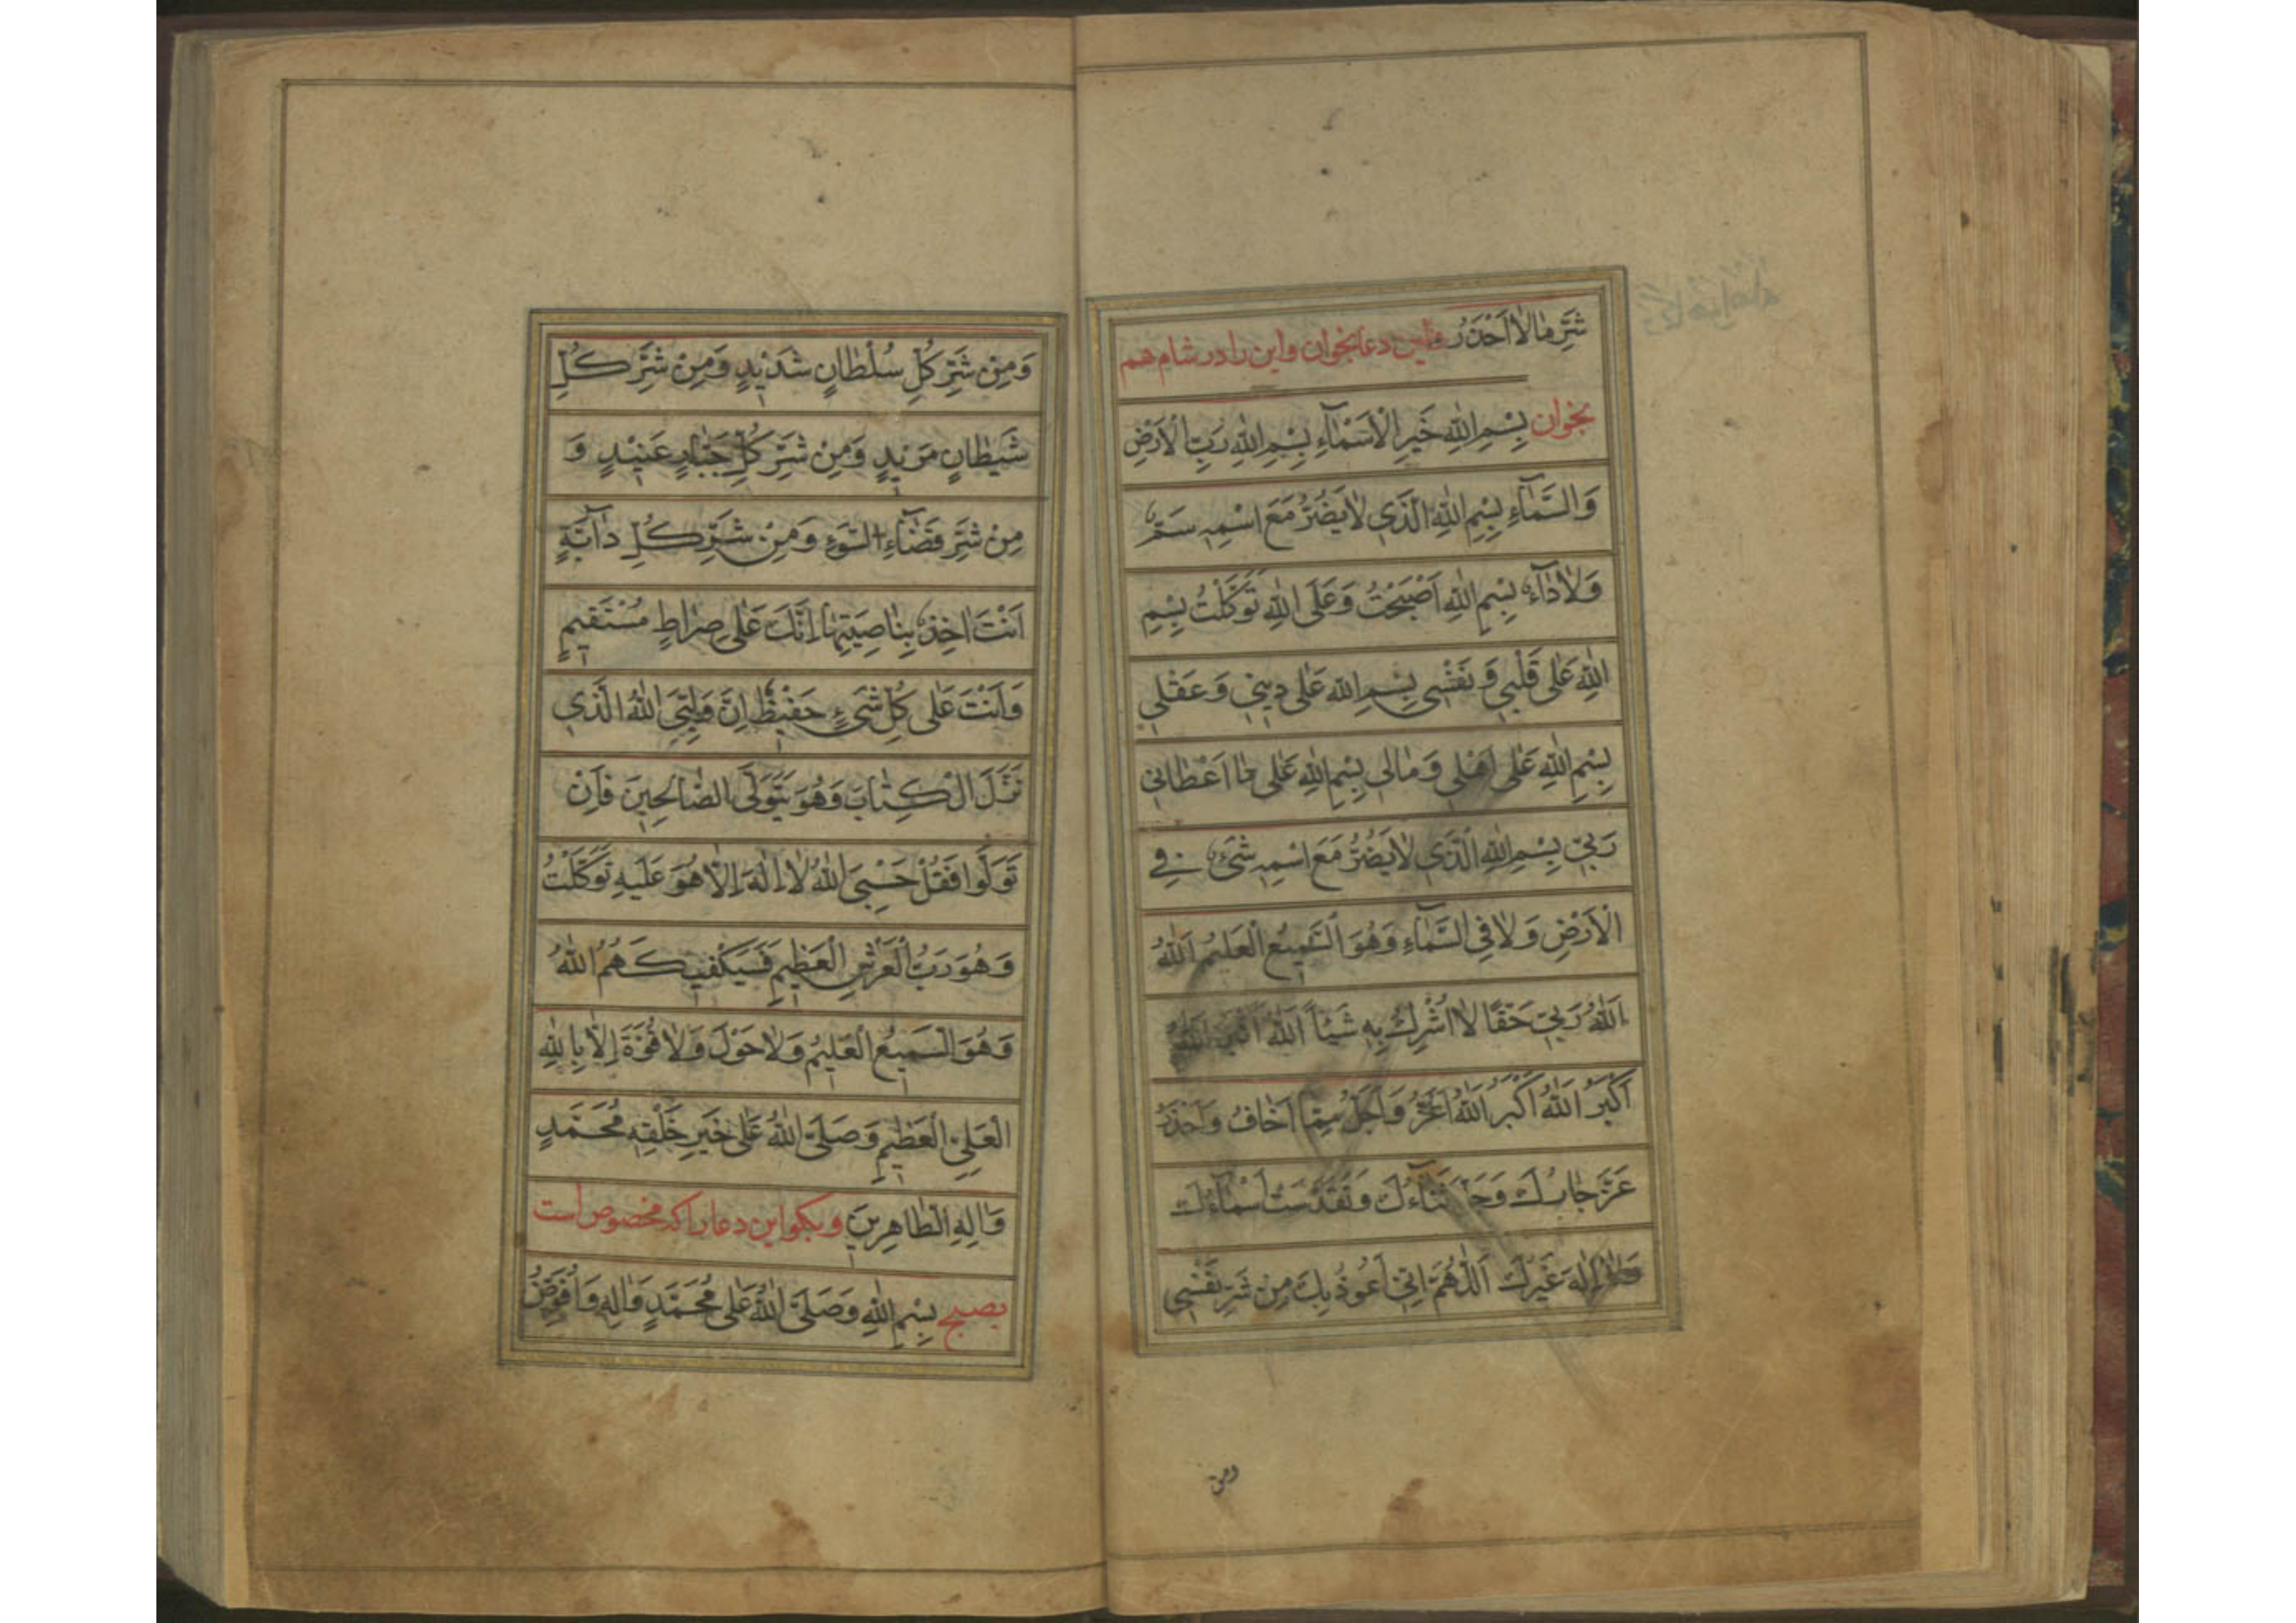 شَرِّ مٰا لاٰ اَحْذَرُ و این دعا بخوان و این را در شام هم
بخوان بِسْمِ اللّٰهِ خَيْرِ الْاَسْمٰآءِ بِسْمِ اللّٰهِ رَبِّ الْاَرْضِ
وَالسَّمٰآءِ بِسْمِ اللّٰهِ الَّذي لاٰ يَضُرُّ مَعَ اسْمِهِ سَمٌّ
وَلاٰ دٰآءٌ بِسْمِ اللّٰهِ اَصْبَحْتُ وَعَلَى اللّٰهِ تَوَكَّلْتُ بِسْمِ
اللّٰهِ عَلٰى قَلْبي وَنَفْسي بِسْمِ اللّٰهِ عَلٰى ديني وَعَقْلي
بِسْمِ اللّٰهِ عَلٰى اَهْلي وَمٰالي بِسْمِ اللّٰهِ عَلٰى مٰا اَعْطٰاني
رَبّي بِسْمِ اللّٰهِ الَّذي لاٰ يَضُرُّ مَعَ اسْمِهِ شَيْءٌ فِي
الْاَرْضِ وَلاٰ فِي السَّمٰآءِ وَهُوَ السَّميعُ الْعَليمُ اَللّٰهُ
اَللّٰهُ رَبّي حَقًّا لاٰ اُشْرِكُ بِهِ شَيْئاً اَللّٰهُ اَكْبَرُ اَللّٰهُ
اَكْبَرُ اَللّٰهُ اَكْبَرُ اَللّٰهُ اَعَزُّ وَاَجَلُّ مِمّٰا اَخٰافُ وَاَحْذَرُ
عَزَّ جٰارُكَ وَجَلَّ ثَنٰآءُكَ وَتَقَدَّسَتْ اَسْمٰآءُكَ
وَلاٰ اِلٰهَ غَيْرُكَ اَللّٰهُمَّ اِنّي اَعُوذُ بِكَ مِنْ شَرِّ نَفْسي
ومن
وَمِنْ شَرِّ كُلِّ سُلْطٰانٍ شَديدٍ وَمِنْ شَرِّ كُلِّ
شَيْطٰانٍ مَريدٍ وَمِنْ شَرِّ كُلِّ جَبّٰارٍ عَنيدٍ وَ
مِنْ شَرِّ قَضٰآءِ السُّوءِ وَمِنْ شَرِّ كُلِّ دٰآبَّةٍ
اَنْتَ اٰخِذٌ بِنٰاصِيَتِهٰا اِنَّكَ عَلٰى صِرٰاطٍ مُسْتَقيمٍ
وَاَنْتَ عَلٰى كُلِّ شَيْءٍ حَفيظٌ اِنَّ وَلِيِّيَ اللّٰهُ الَّذي
نَزَّلَ الْكِتٰابَ وَهُوَ يَتَوَلَّى الصّٰالِحينَ فَاِنْ
تَوَلَّوْا فَقُلْ حَسْبِيَ اللّٰهُ لاٰ اِلٰهَ اِلاّٰ هُوَ عَلَيْهِ تَوَكَّلْتُ
وَهُوَ رَبُّ الْعَرْشِ الْعَظيمِ فَسَيَكْفيكَهُمُ اللّٰهُ
وَهُوَ السَّميعُ الْعَليمُ وَلاٰ حَوْلَ وَلاٰ قُوَّةَ اِلاّٰ بِاللّٰهِ
الْعَلِيِّ الْعَظيمِ وَصَلَّى اللّٰهُ عَلٰى خَيْرِ خَلْقِهِ مُحَمَّدٍ
وَاٰلِهِ الطّٰاهِرينَ و بگو این دعا را که مخصوص است
بصبح بِسْمِ اللّٰهِ وَصَلَّى اللّٰهُ عَلٰى مُحَمَّدٍ وَاٰلِهِ وَاُفَوِّضُ